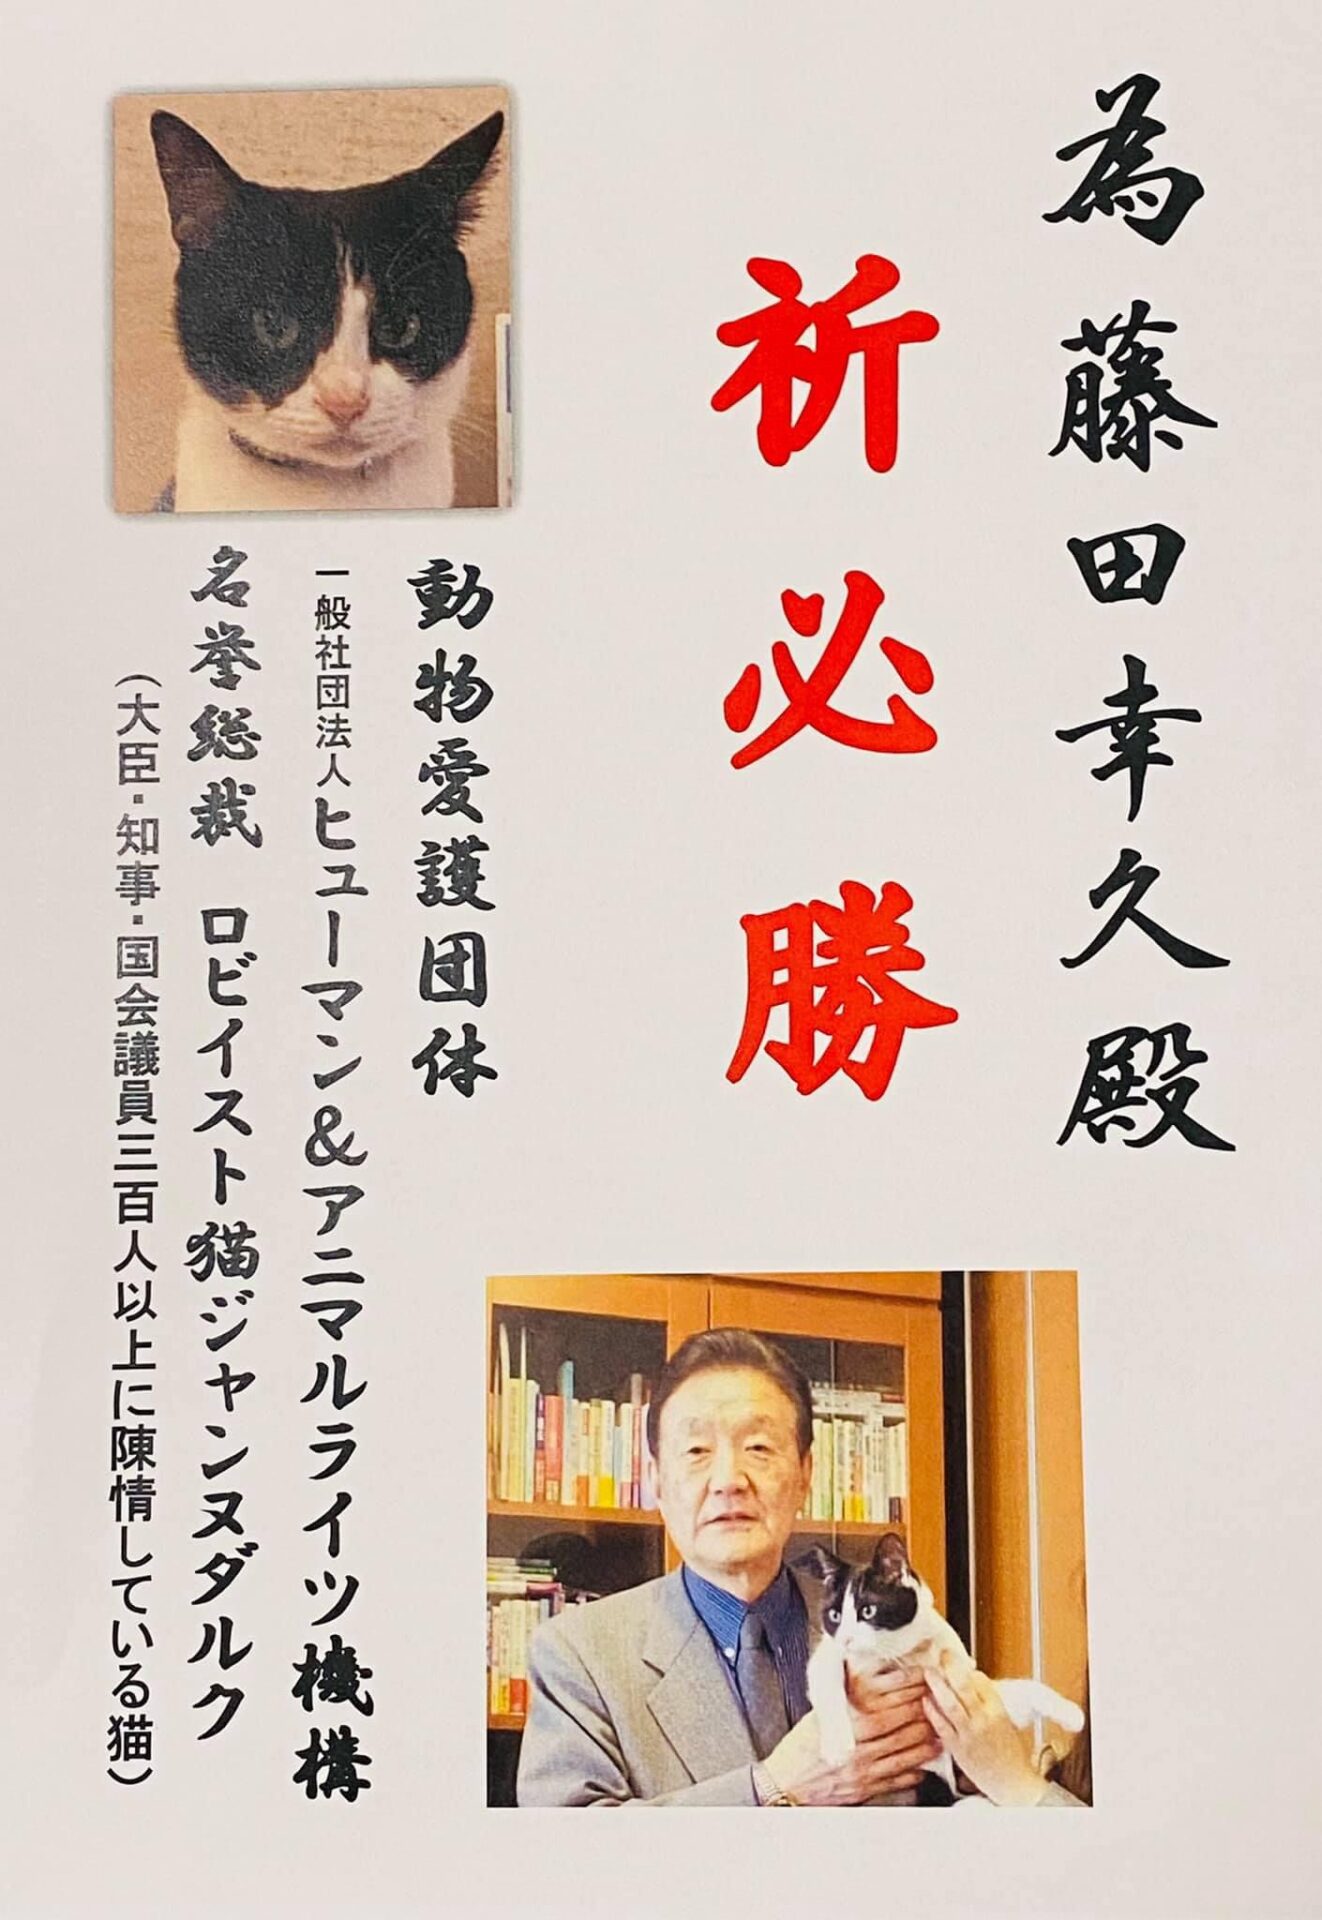 為藤田幸久殿
祈必勝
動物愛護団体
一般社団法人ヒューマン&アニマルライツ機構
名誉総裁 ロビイスト猫ジャンヌダルク
(大臣・知事・国会議員三百人以上に陳情している猫)